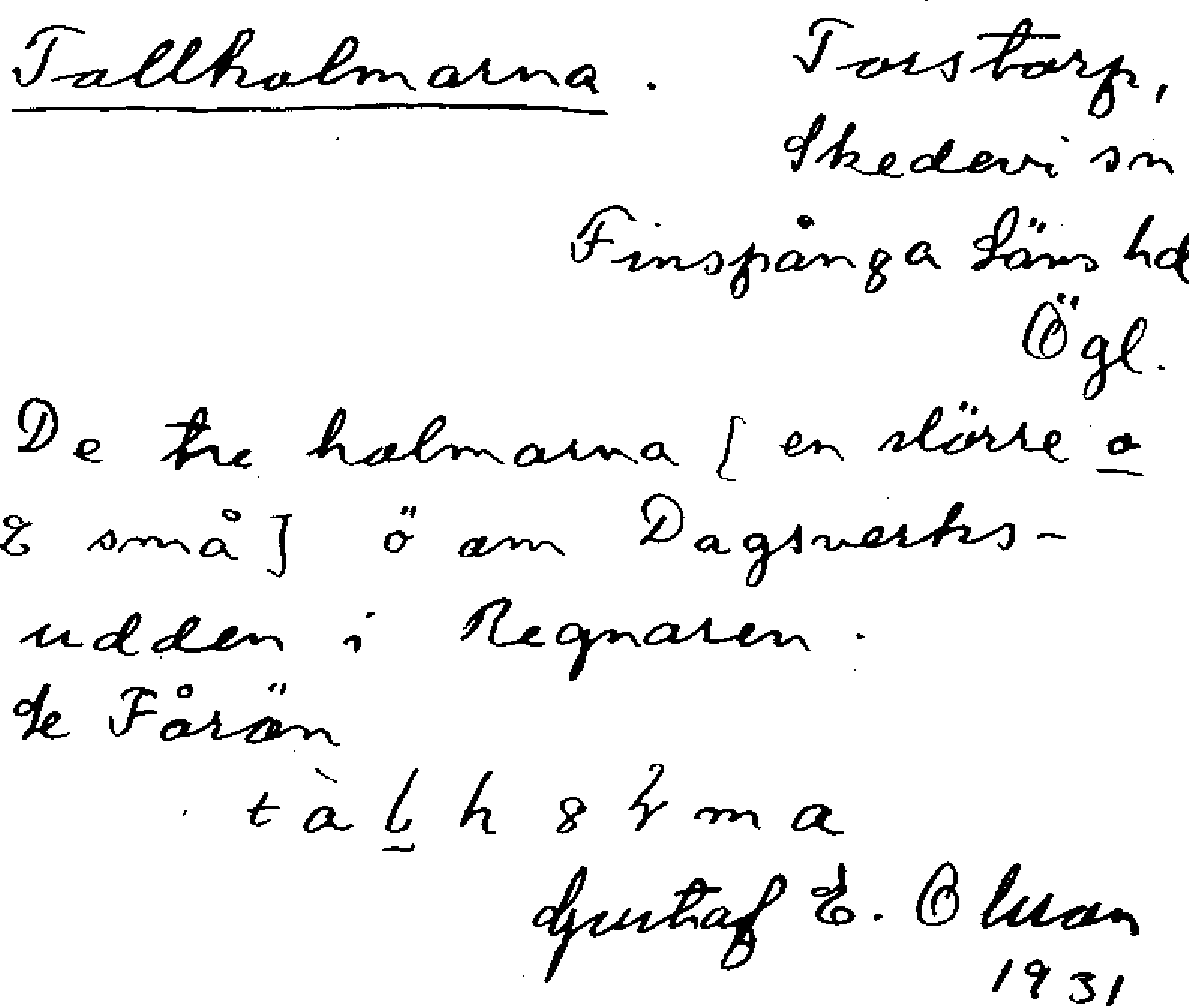 Tallholmarna. Torstorp,
Skedevi sn
Finspånga läns hd
Ögl.
De tre holmarna [en större o
2 små] ö om Dagsverks-
udden i Regnaren.
Se Fårön
Gustaf E. Olsson
1931